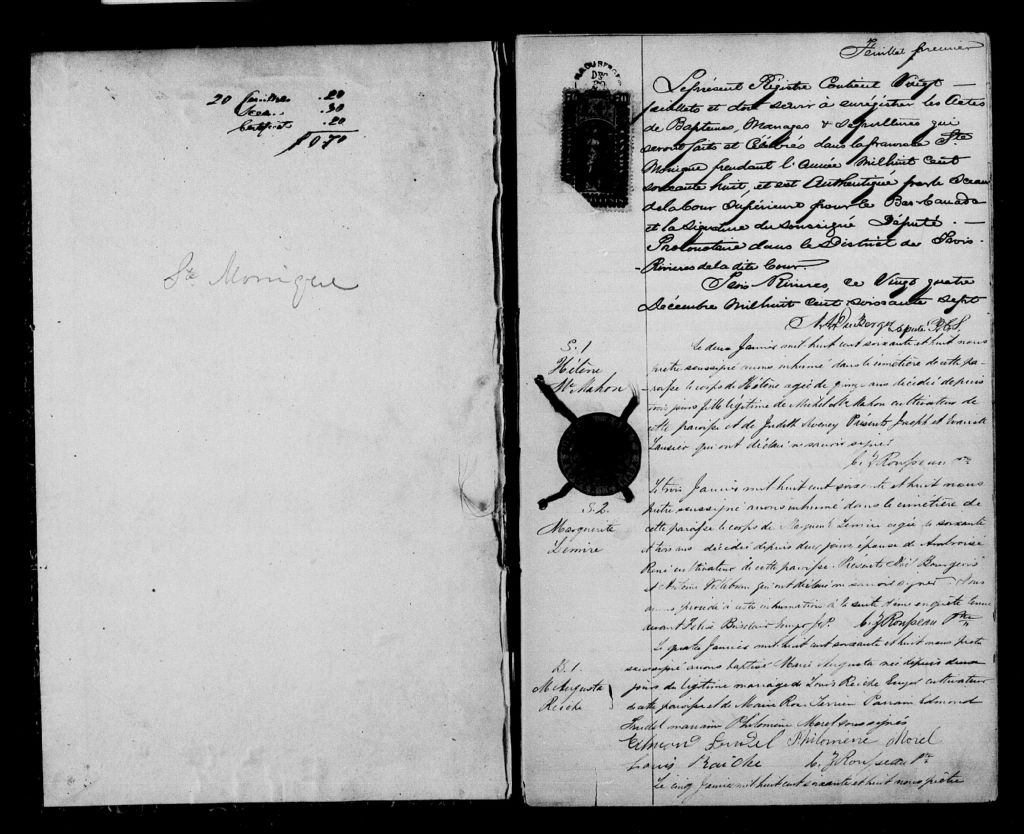 20 feuillets .20
Sceau .30
Certificat .20
$0.70
Ste Monique
Feuillet premier
DEC
70 70
Le présent Registre Contient Vingt
feuillets et doit servir à enrégistrer les Actes
de Baptemes, Mariages & Sépultures qui
seront faits et Célébrés dans la paroisse Ste
Monique pendant l'Année Mil huit Cent
soixante huit, et est Authentiqué par le Sceau
de la Cour Supérieure pour le Bas-Canada
et la signature du soussigné Député -
Protonotaire dans le District des Trois-
Rivieres de la dite Cour.
Trois Rivieres, ce Vingt quatre
Décembre Mil huit Cent soixante sept
Député P.C.S.
S. 1
Hélène
Mc Mahon
Le deux Janvier mil huit cent soixante et huit nous
prêtre soussigné avons inhumé dans le cimetière de cette pa-
roisse le corps de Hélène agée de ans décédée depuis
trois jours fille légitime de Michel Mc Mahon cultivateur de
cette paroisse et de Judith Présents Joseph et
qui ont déclaré ne savoir signer
C. Z. Rousseau Ptre
S. 2.
Marguerite
Lemire
Le trois Janvier mil huit cent soixante et huit nous
prêtre soussigné avons inhumé dans le cimetière de
cette paroisse le corps de Marguerite Lemire agée de soixante
et trois ans décédée depuis deux jours épouse de Ambroise
René cultivateur de cette paroisse. Présents Noël Bourgeois
et Antoine qui ont déclaré ne savoir signer Nous
avons procédé à cette inhumation à la suite d'une enquête tenue
devant Félix J.P. C. Z. Rousseau Ptre
B. 1.
M. Augusta
Reiche
Le quatre Janvier mil huit cent soixante et huit nous prêtre
soussigné avons baptisé Marie Augusta née depuis deux
jours du légitime mariage de Louis Reiche cultivateur
de cette paroisse et de Marie Rose Parrain Edmond
Trudel marraine Philomène Morel soussignés
Edmond Trudel Philomene Morel
Louis Raiche C. Z. Rousseau Ptre
Le cinq Janvier mil huit cent soixante et huit nous prêtre